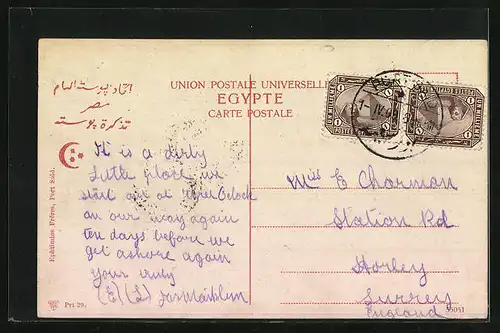 اتحاد پوستة العام
مصر
تذكرة پوسته
UNION POSTALE UNIVERSELLE
EGYPTE
CARTE POSTALE
It is a dirty
little place we
start out at three O'clock
on our way again
ten days before we
get ashore again
your truly
Miss E Charman
Station Rd
Horley
Surrey
England
Ephtimios Frères, Port Said.
Prt 29.
35051